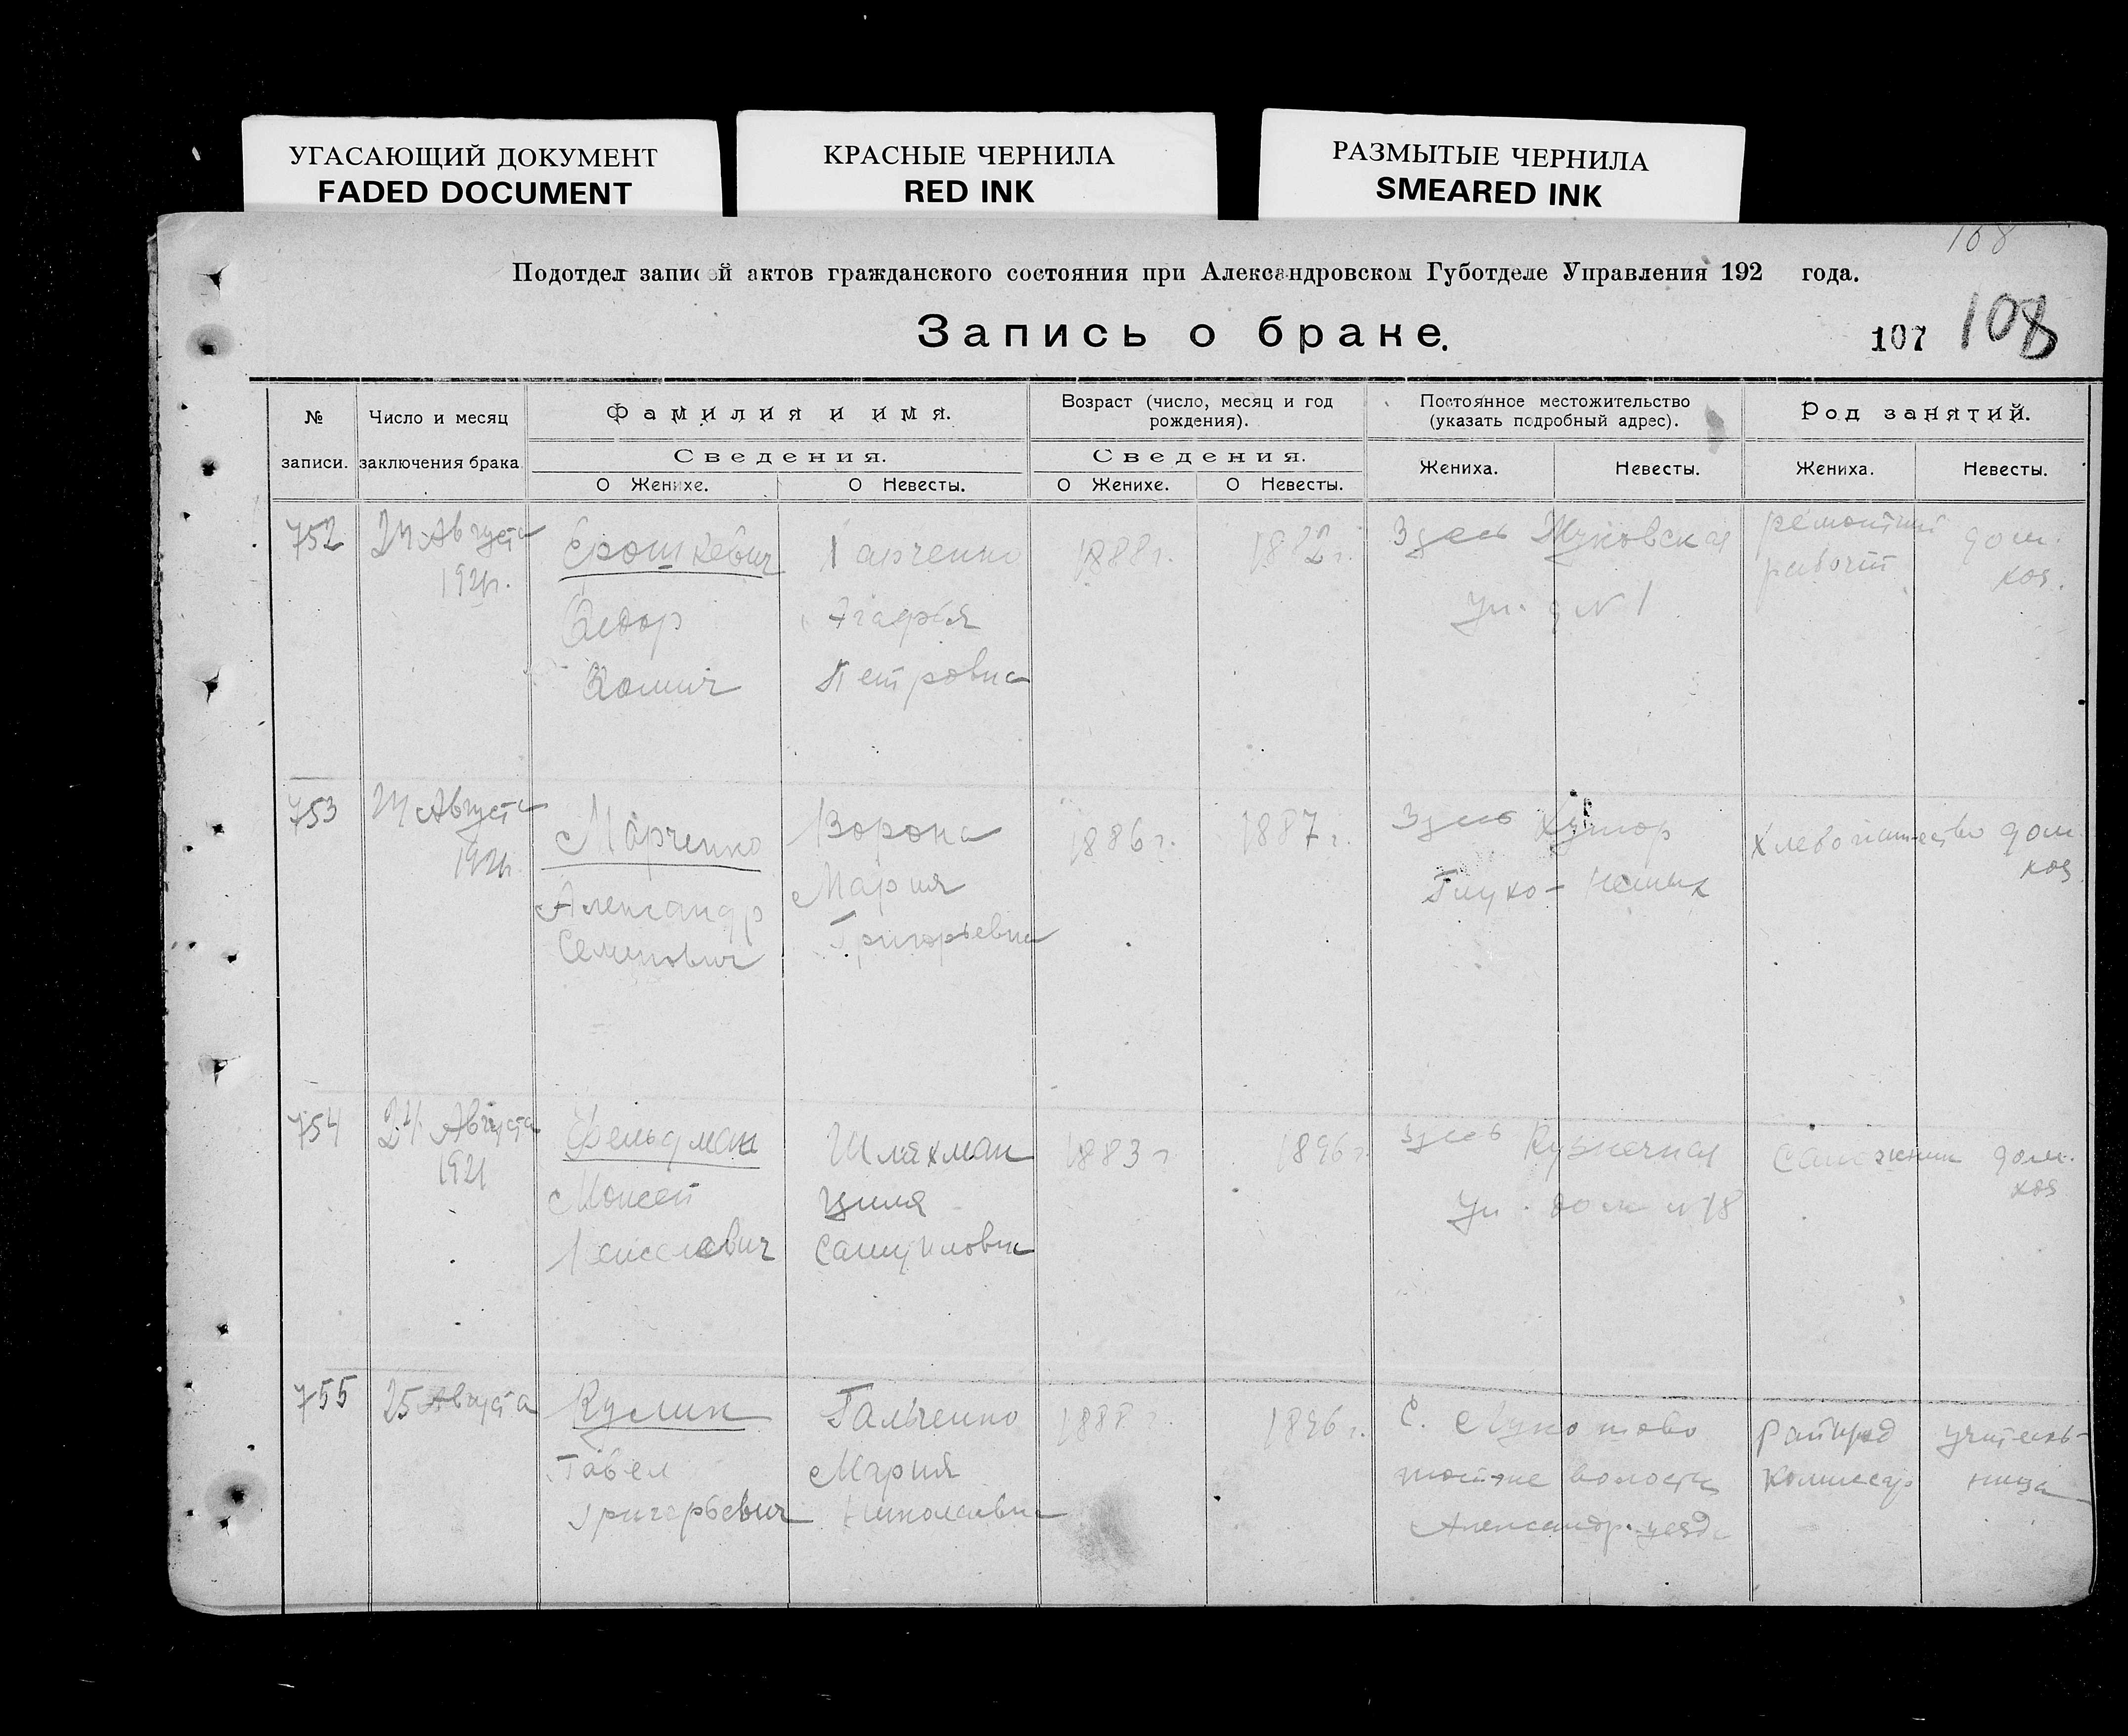 УГАСАЮЩИЙ ДОКУМЕНТ
FADED DOCUMENT
КРАСНЫЕ ЧЕРНИЛА
RED INK
РАЗМЫТЫЕ ЧЕРНИЛА
SMEARED INK
168
Подотдел записей актов гражданского состояния при Александровском Губотделе Управления 192 года.
Запись о браке.
107 108
№ записи.
Число и месяц заключения брака
Фамилия и имя.
Сведения.
О Женихе.
О Невесты.
Возраст (число, месяц и год рождения).
Сведения.
О Женихе.
О Невесты.
Постоянное местожительство (указать подробный адрес).
Жениха.
Невесты.
Род занятий.
Жениха.
Невесты.
752 24 Августа Ерошкевич Гарченко 1888 г. 1882 г. Здесь Жуковская ремонтный дом.
1921 г. Федор Агафья ул. д N 1 рабочий хоз.
Петровна
753 24 Августа Марченко Ворона 1886 г. 1887 г. Здесь Хутор Хлебопашество дом
1921 Александр Мария хоз
Семенович Григорьевна
754 24 Августа Фельдман Шляхман 1883 г 1896 г. Здесь Кузнечная Сапожник дом.
1921 Моисей Циля ул. дом N 18 хоз
Самуиловна
755 25 Августа Кулик Гальченко 1888 г. 1896 г. С. учитель-
Павел Мария волости комиссар ница
Григорьевич Николаевна Александр. уезда